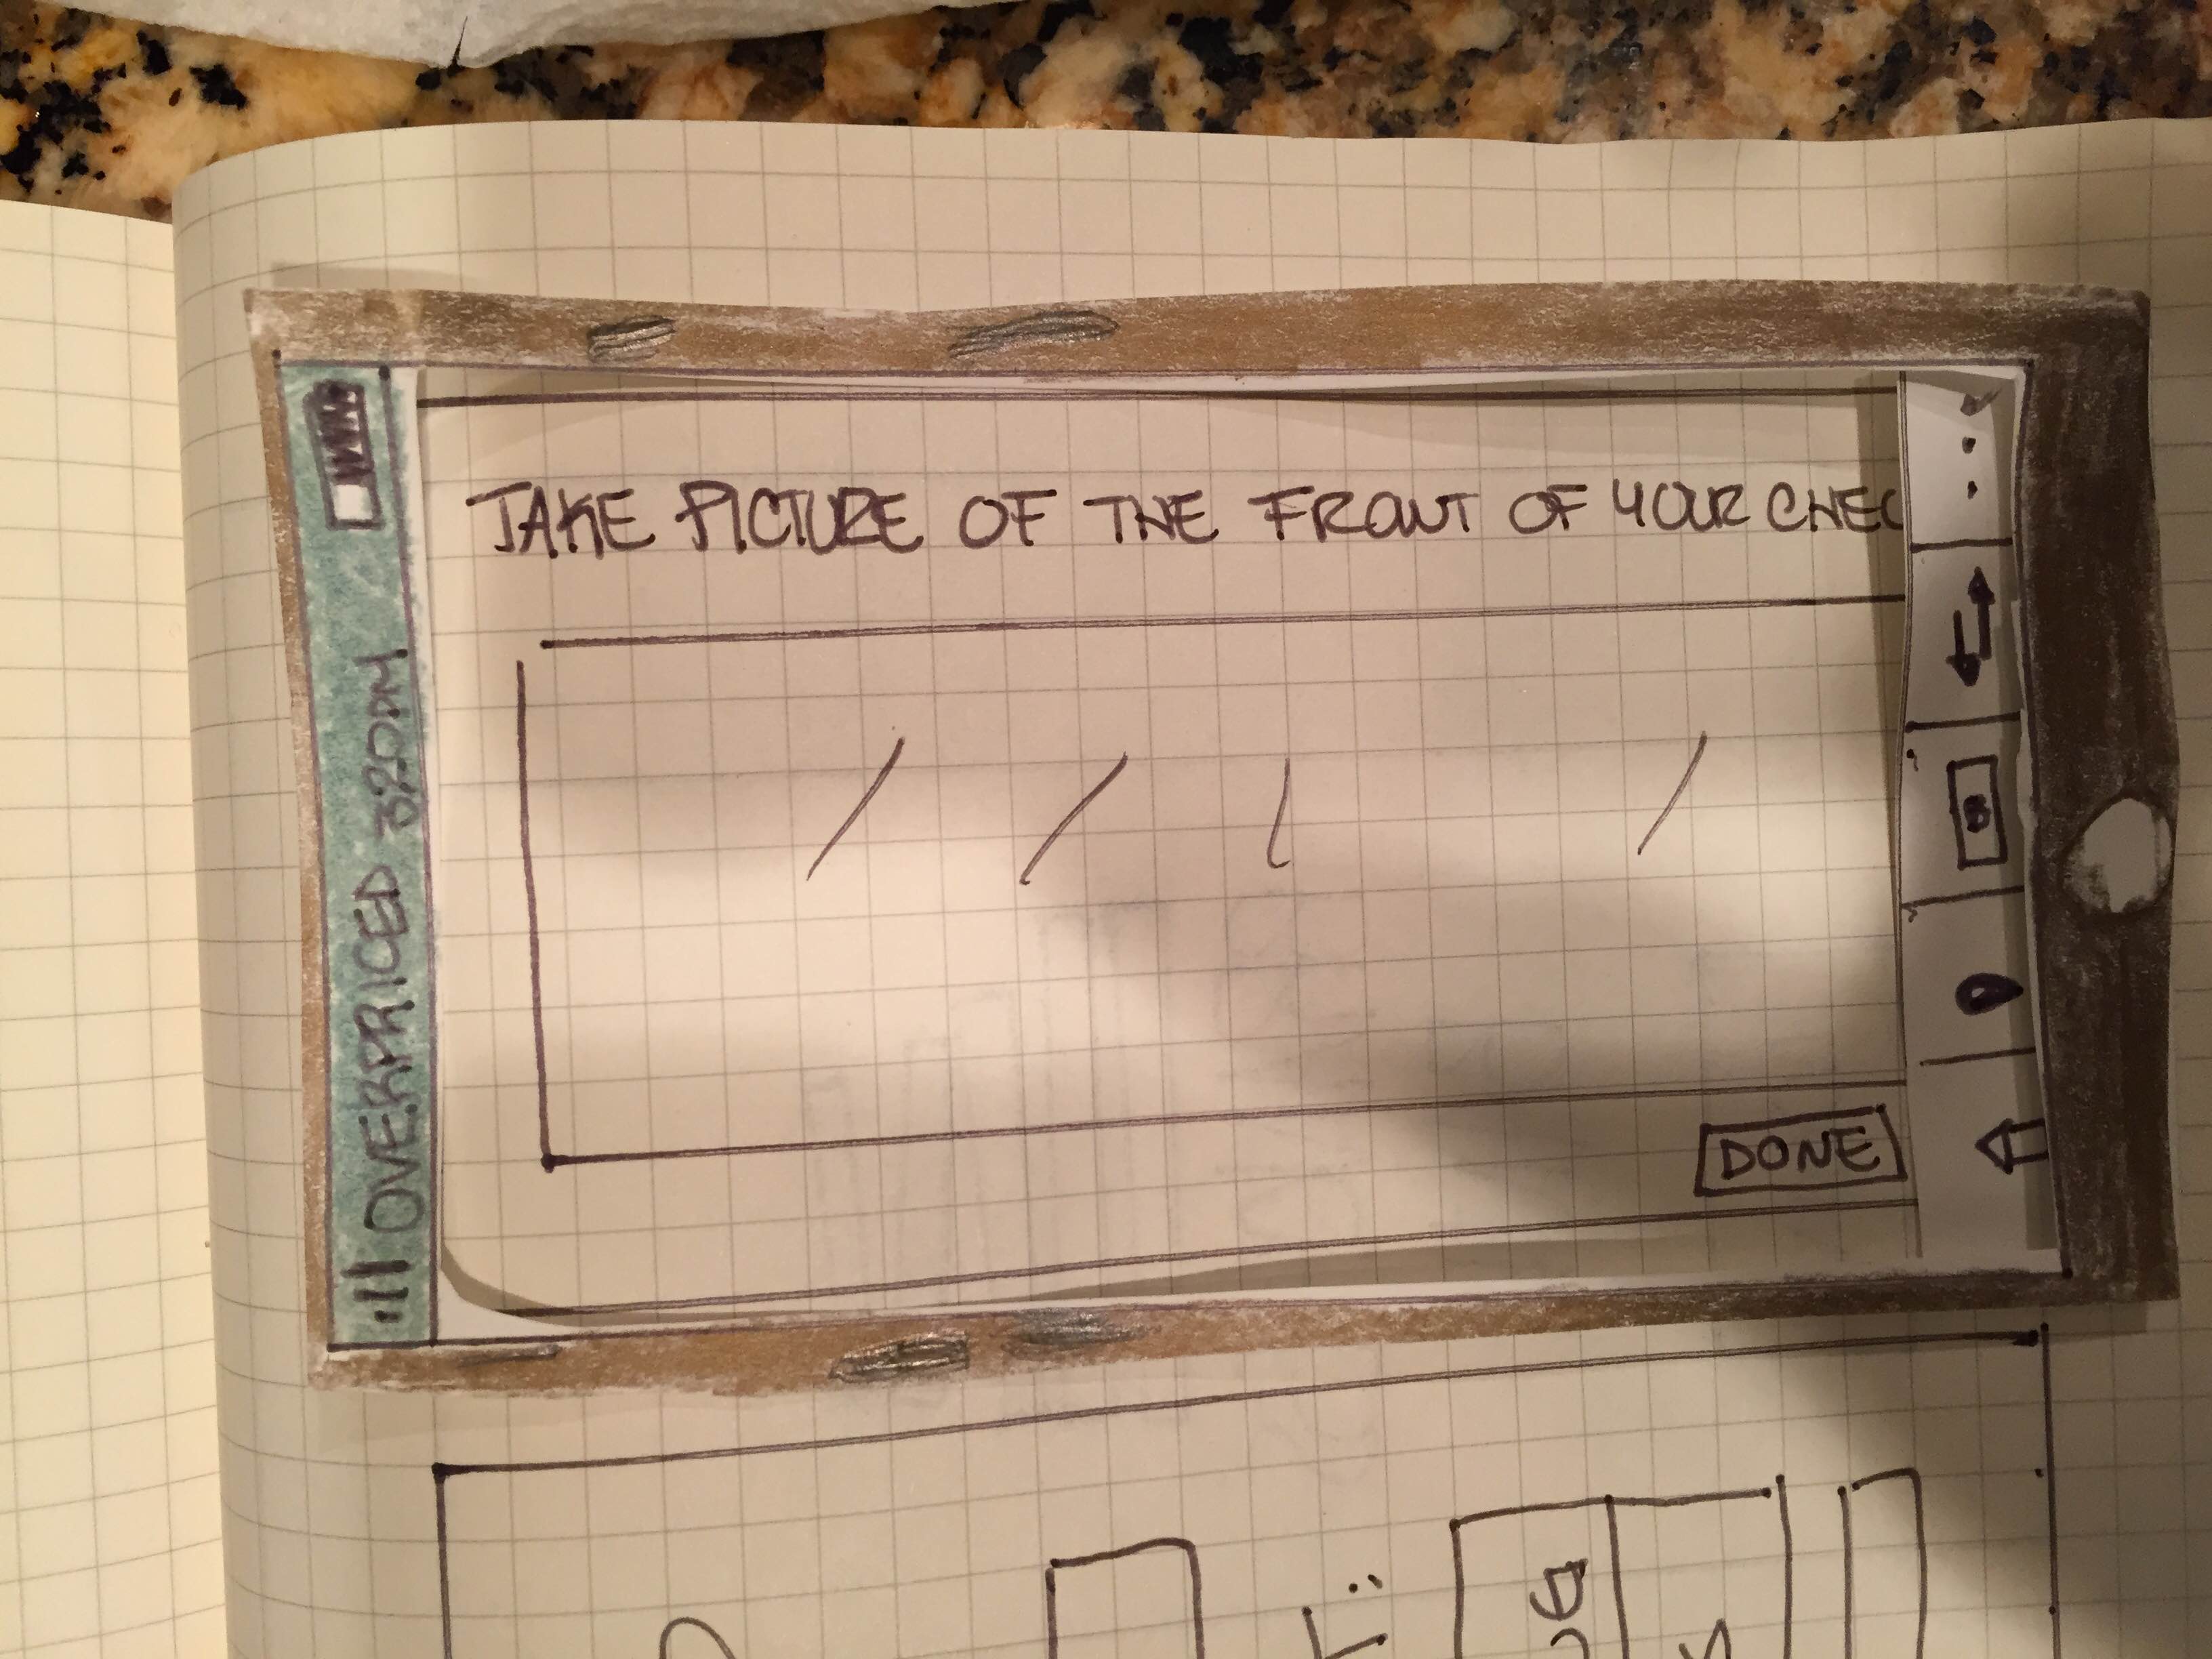 OVERPRICED 320PM
TAKE PICTURE OF THE FRONT OF YOUR CHEC
DONE